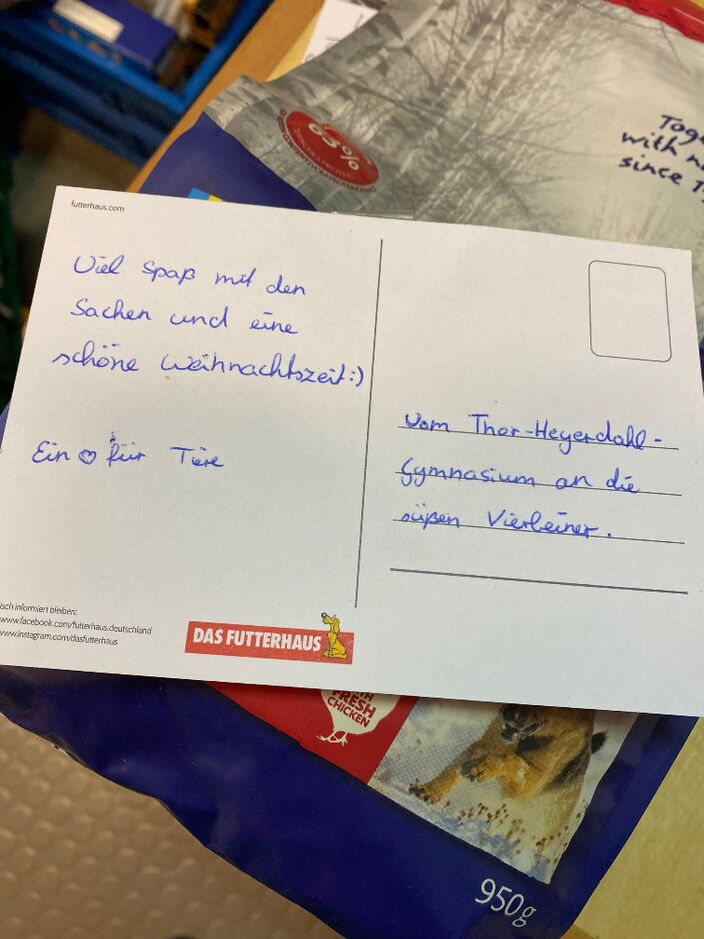 futterhaus.com
Viel Spaß mit den
Sachen und eine
schöne Weihnachtszeit:)
Ein ♡ für Tiere
Vom Thor-Heyerdahl-
Gymnasium an die
süßen Vierbeiner.
isch informiert bleiben:
www.facebook.com/futterhaus.deutschland
www.instagram.com/dasfutterhaus
DAS FUTTERHAUS
63%
Toge
with n
since
FRESH
CHICKEN
950g